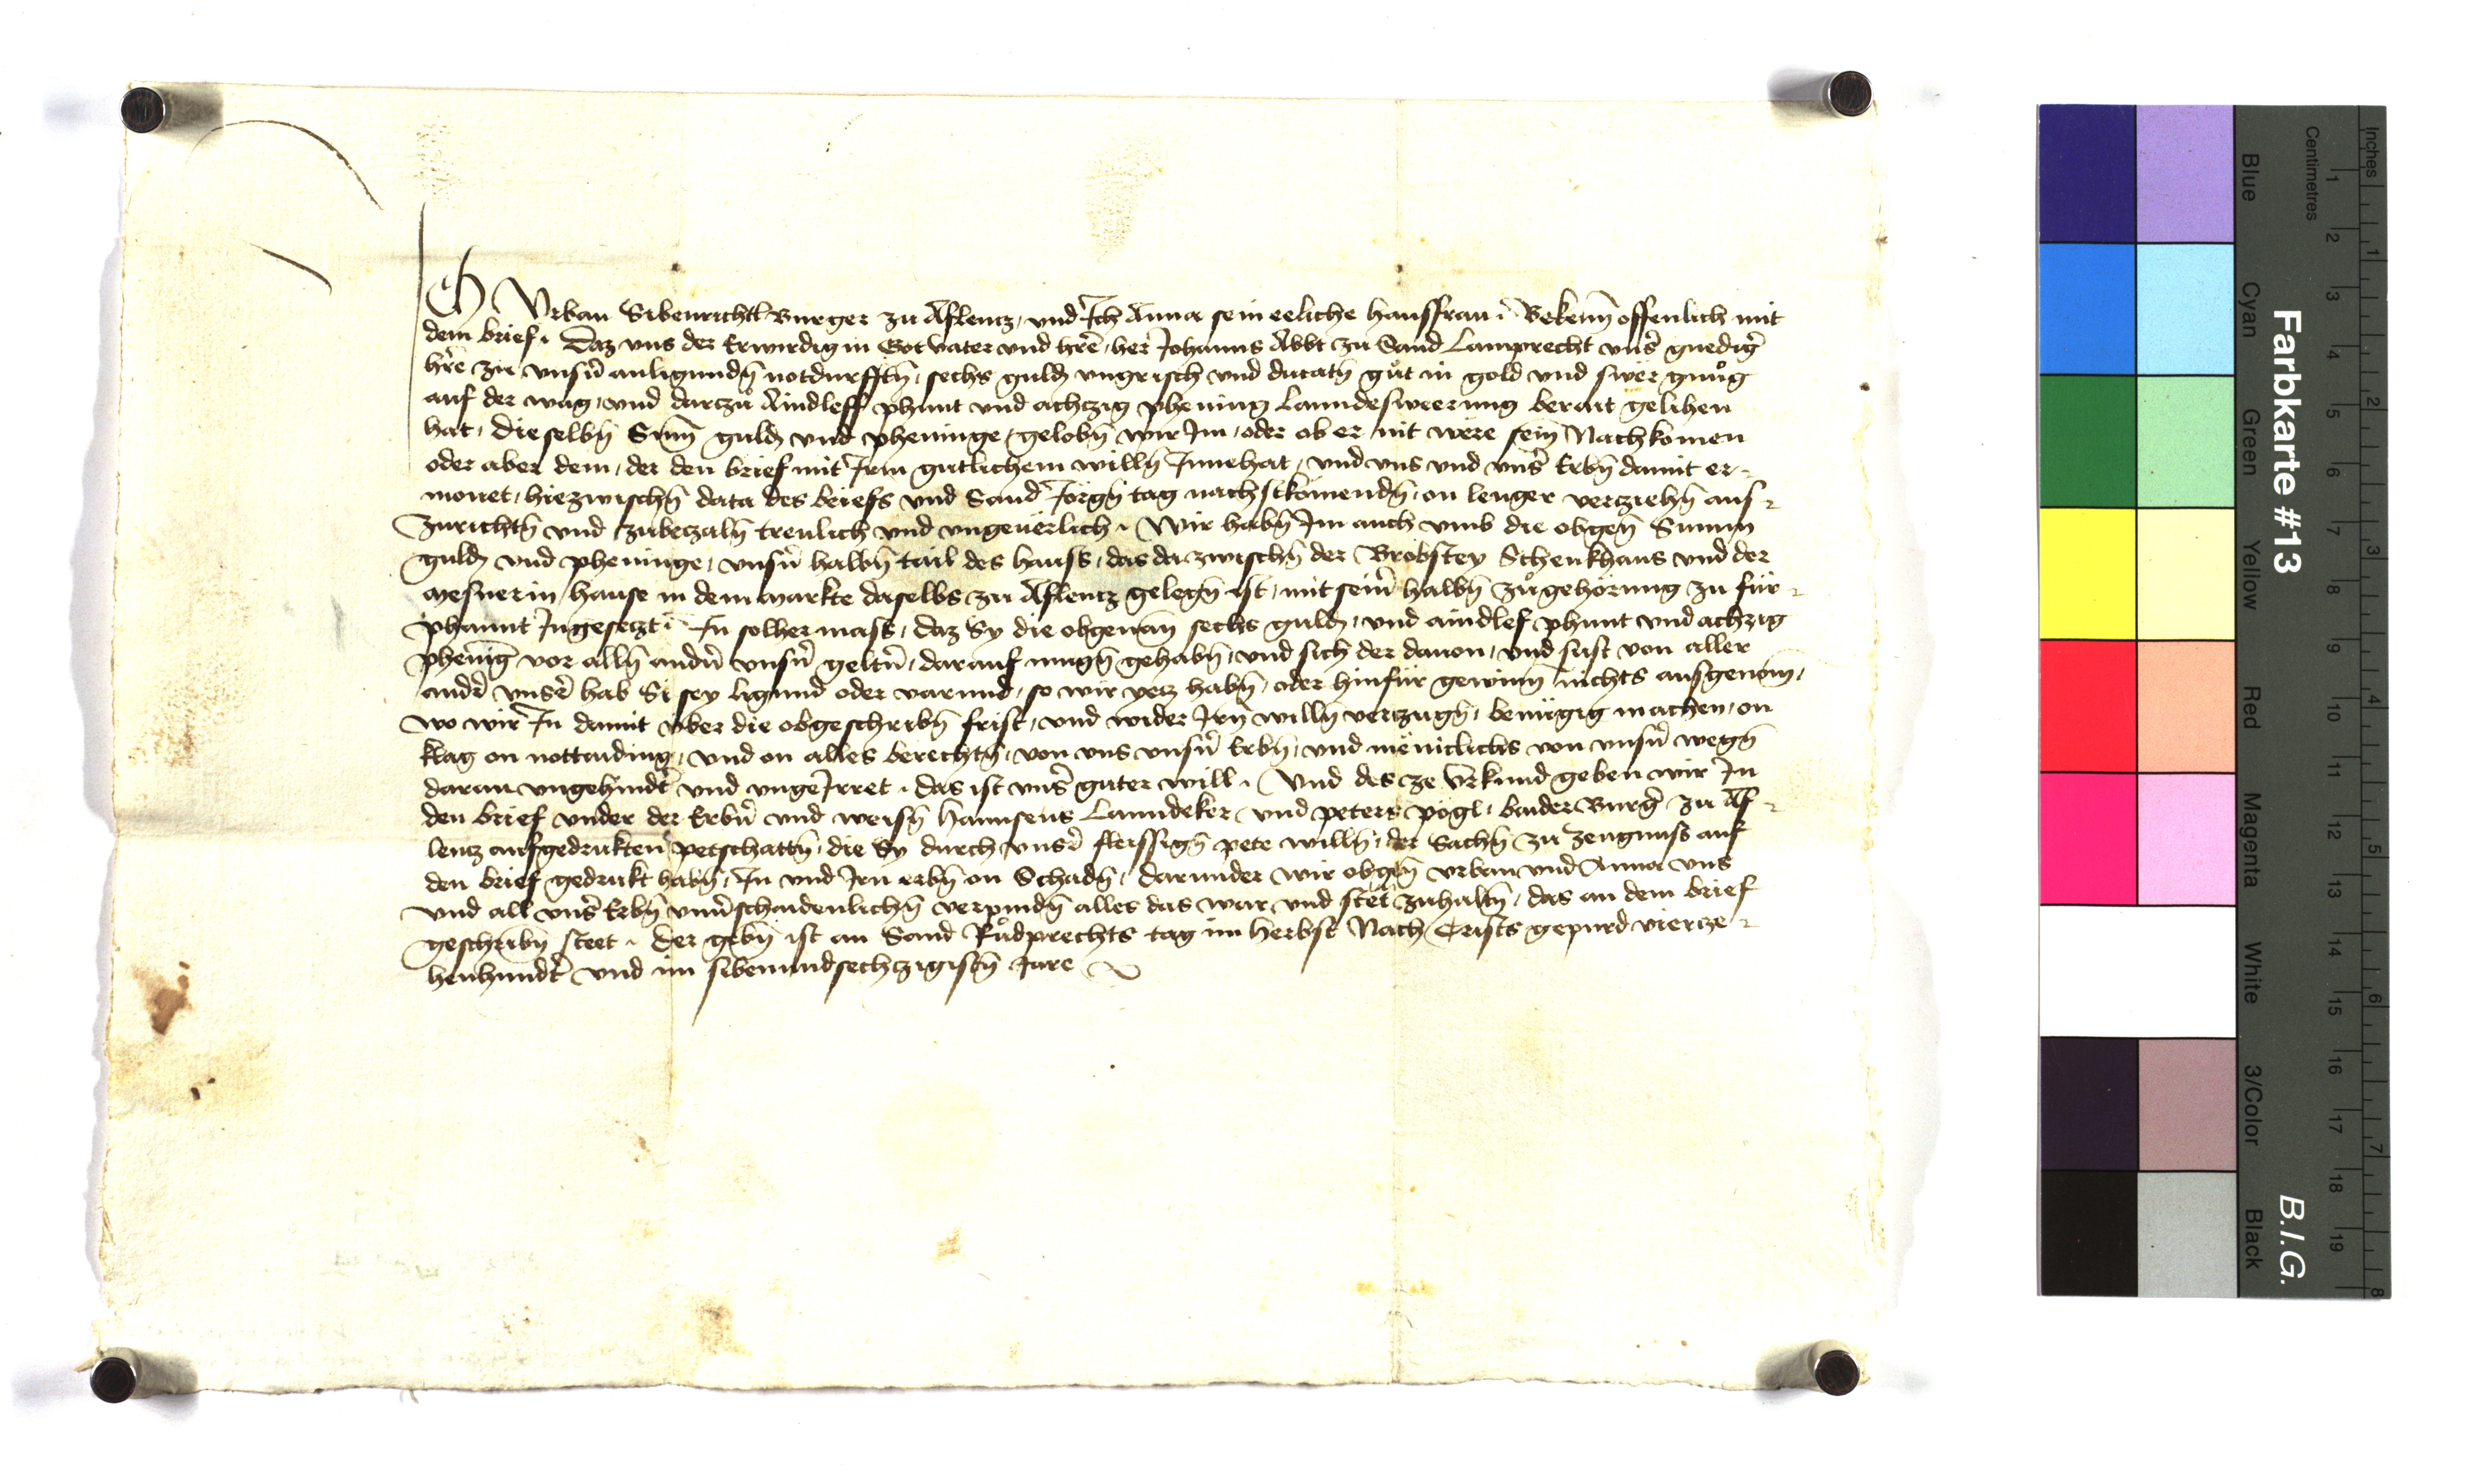 Ich Vrban Sibenrichtl Burger zu Aflencz, vnd Ich Anna sein eeliche hausfrau Bekenn̄ offenlich mit
dem brief. Daz vns der Erwirdig in Got Vater vnd hr̄e, her Johanns Abbt zu Sand Lamprecht vnß gnedig
hr̄e zu vnsñ anligundn̄ notdurfftn̄, sechs guldn̄ vngrisch vnd ducatn̄ gůt in gold vnd swër gnůg
auf der wag, vnd darzů Aindleff phunt vnd achczig phening Lanndesweerung berait gelihen
hat, dieselbn̄ Sum̄ guldn̄ vnd pheninge, gelobn̄ wir Im, oder ob er nit were sein Nachkomen
oder aber dem, der den brief mit Irm gutlichem willn̄ Innehat, vnd vns vnd vnß Erbn̄ damit er-
monet, hiezwischn̄ data des briefs vnd Sand Jörgn̄ tag nachstkomendn̄, on lenger verziehn̄ aus-
zurichtn̄ vnd zubeczaln̄ treulich vnd vngeuerlich. Wir habn̄ Im auch vmb die obgen̄ Summ
guldn̄ vnd pheninge, vnsñ halbn̄ tail des hauss, das da zwischn̄ der Brobstey Schenkhaus vnd der
Mesnerin hause in dem markte daselbs zu Aflencz gelegn̄ ist, mit seim̄ halbn̄ zůgehörung zu für-
phannt Ingeseczt. In solher mass, daz Sy die obgenan̄ sechs guldn̄, vnd aindlef phunt vnd achzig
phenīg vor alln̄ andn̄ vnsñ geltn̄, darauf mugn̄ gehabn̄, vnd sich der dauon, vnd sust von aller
andr̄ vnsr̄ hab Si sey ligund oder varund, so wir yecz habn̄, oder hinfür gewinn̄ nichts ausgenom̄,
wo wir In damit vber die obgeschribn̄ frist, vnd wider Irn̄ willn̄ verzugn̄, benügig machen, on
klag on nottaiding, vnd on alles berechtn̄, von vns vnsñ Erbn̄, vnd menicklichs von vnsñ wegn̄
daran vngehindt̄ vnd vngeIrret. das ist vnß guter will. Vnd des ze Vrkund geben wir In
den brief vnder der Erbñ vnd weisn̄ Hannsens Lanndeker vnd Peters Pögl, baider Burg̃ zu Af-
lencz aufgedrukten petschattn̄, die Sy durch vnsr̄ fleissign̄ pete willn̄, der Sachn̄ zu zeugnuss auf
den brief gedrukt habn̄, In vnd Irn erbn̄ on Schadn̄, darunder wir obgen̄ Vrban vnd Anna vns
vnd all vnß Erbn̄ vnuschaidenlichn̄ verpindn̄ alles das war vnd stët zuhaltn̄, das an dem brief
geschribn̄ steet. Der gebn̄ ist an Sand Růdprechts tag im herbst Nach Crists gepurd vierze-
henhundt̄ vnd im sibenundsechczigistn̄ Jare
Farbkarte #13
B.I.G.
Inches
Centimetres
Blue
Cyan
Green
Yellow
Red
Magenta
White
3/Color
Black
1 2 3 4 5 6 7 8 9 10 11 12 13 14 15 16 17 18 19
1 2 3 4 5 6 7 8